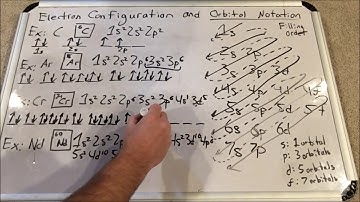 Electron Configuration and Orbital Notation
Ex: C 6 C 1s² 2s² 2p²
1s 2s 2p
Ex: Ar Ar 1s² 2s² 2p⁶ 3s² 3p⁶
: Cr 24 Cr 1s² 2s² 2p⁶ 3s² 3p⁶ 4s¹ 3d⁵
Ex: Nd 60 Nd 1s² 2s² 2p 4s² 3d¹⁰ 4p⁶
5s² 4d¹⁰ 5
Filling order
1s
2s 2p
3s 3p 3d
4s 4p 4d 4f
5s 5p 5d 5f
6s 6p 6d
7s 7p
s: 1 orbital
p: 3 orbitals
d: 5 orbitals
f: 7 orbitals